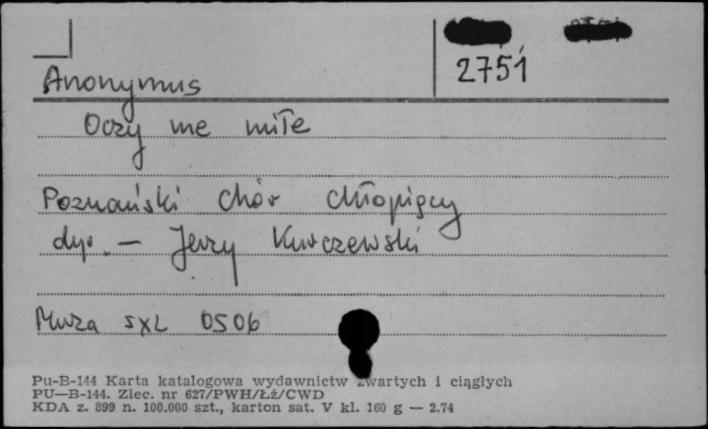 2751
Anonymus
Oczy me miłe
Poznański Chór chłopięcy
dyr. — Jerzy Kurczewski
Muza SXL 0506
Pu-B-144 Karta katalogowa wydawnictw zwartych i ciągłych
PU—B-144. Zlec. nr 627/PWH/ŁŻ/CWD
KDA z. 899 n. 100.000 szt., karton sat. V kl. 160 g — 2.74